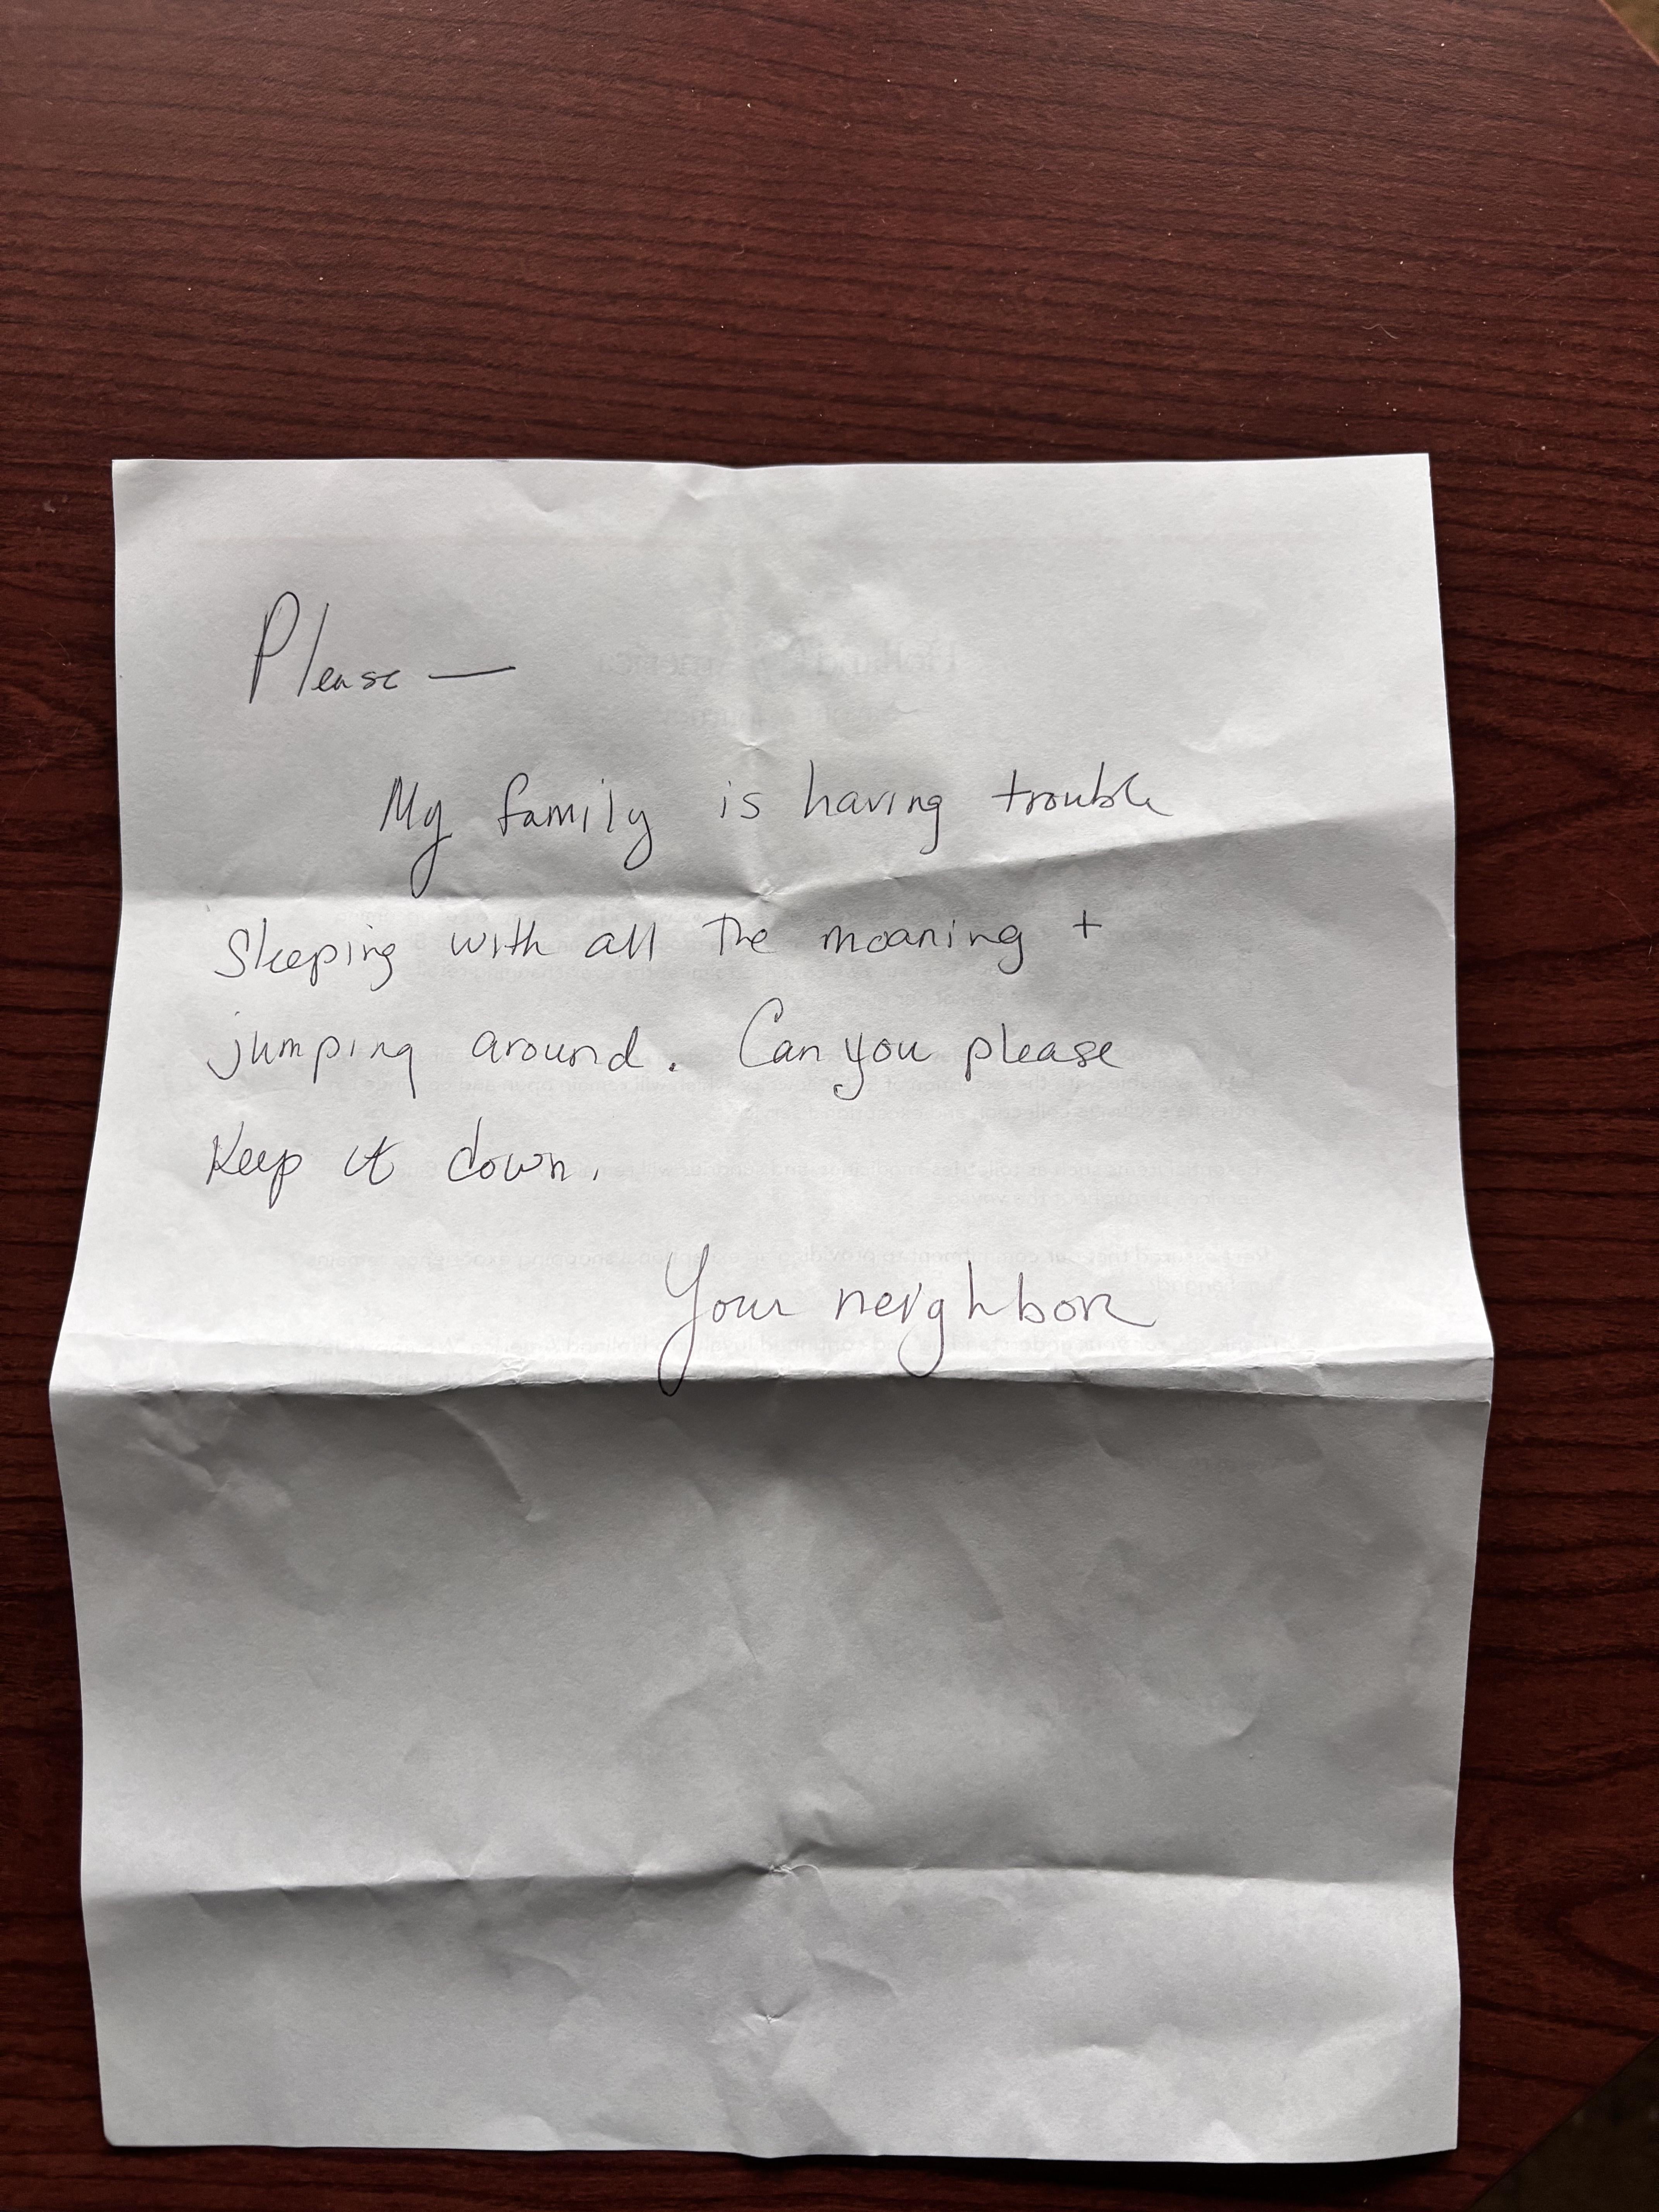 Please —
My family is having trouble
Sleeping with all the moaning +
jumping around. Can you please
Keep it down.
Your neighbor